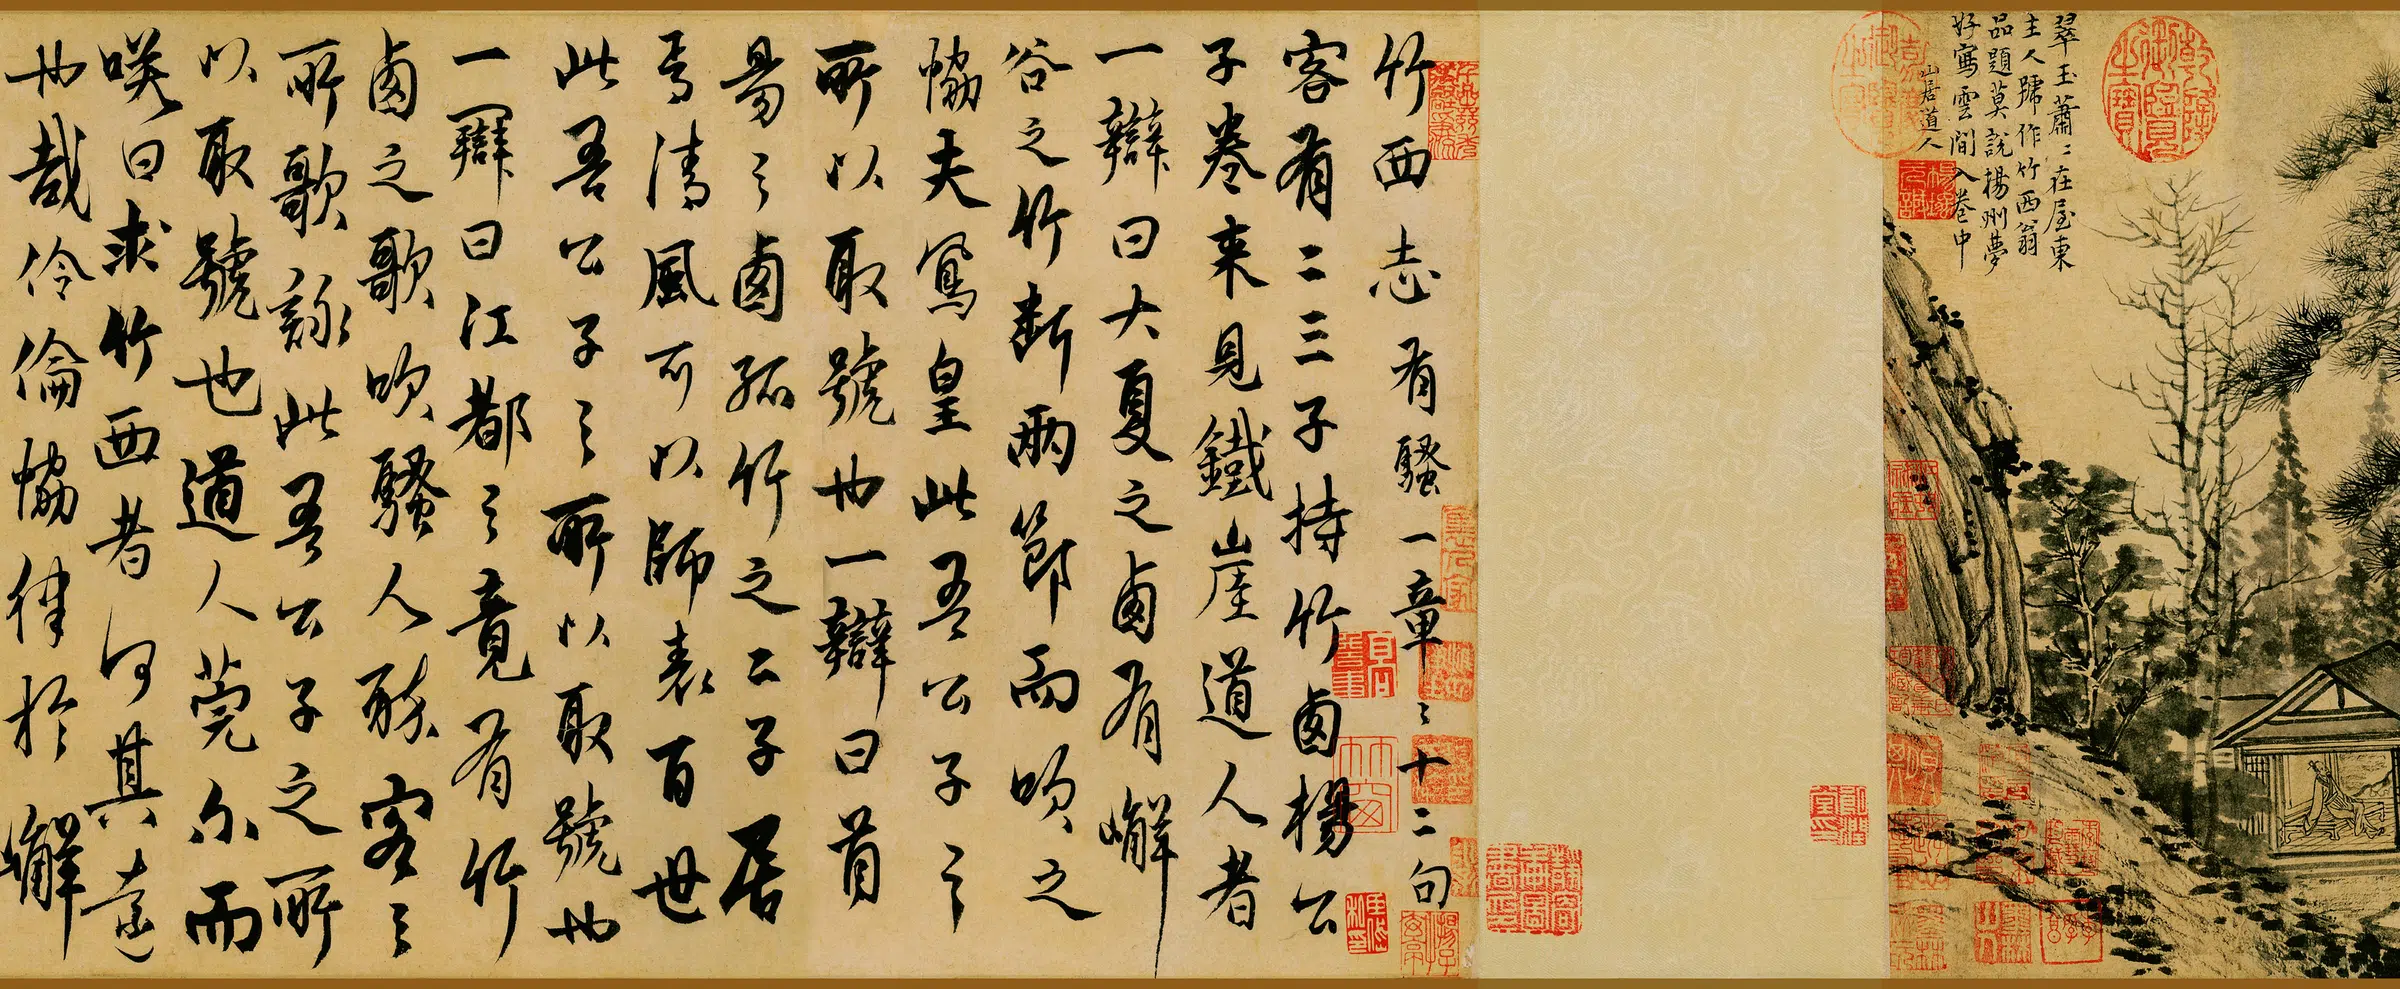 翠玉蕭〻在屋東
主人歸作竹西翁
品題莫說楊州夢
好寫雲間入卷中
山居道人
乾隆御覽之寶
竹西志 有騷一章〻十二句
客有二三子持竹卤楊公
子卷来見鐵崖道人者
一辯曰大夏之卤有嶰
谷之竹断兩節而吹之
恊夫鳳皇此吾公子之
所以取號也一辯曰首
昜之卤孤竹之二子居
焉清風可以師表百世
此吾公子之所以取號也
一辯曰江都之竟有竹
卤之歌吹騷人醉客之
所歌詠此吾公子之所
以取號也道人莞尔而
唉曰求竹西者何其遠
也哉伶倫恊律於嶰